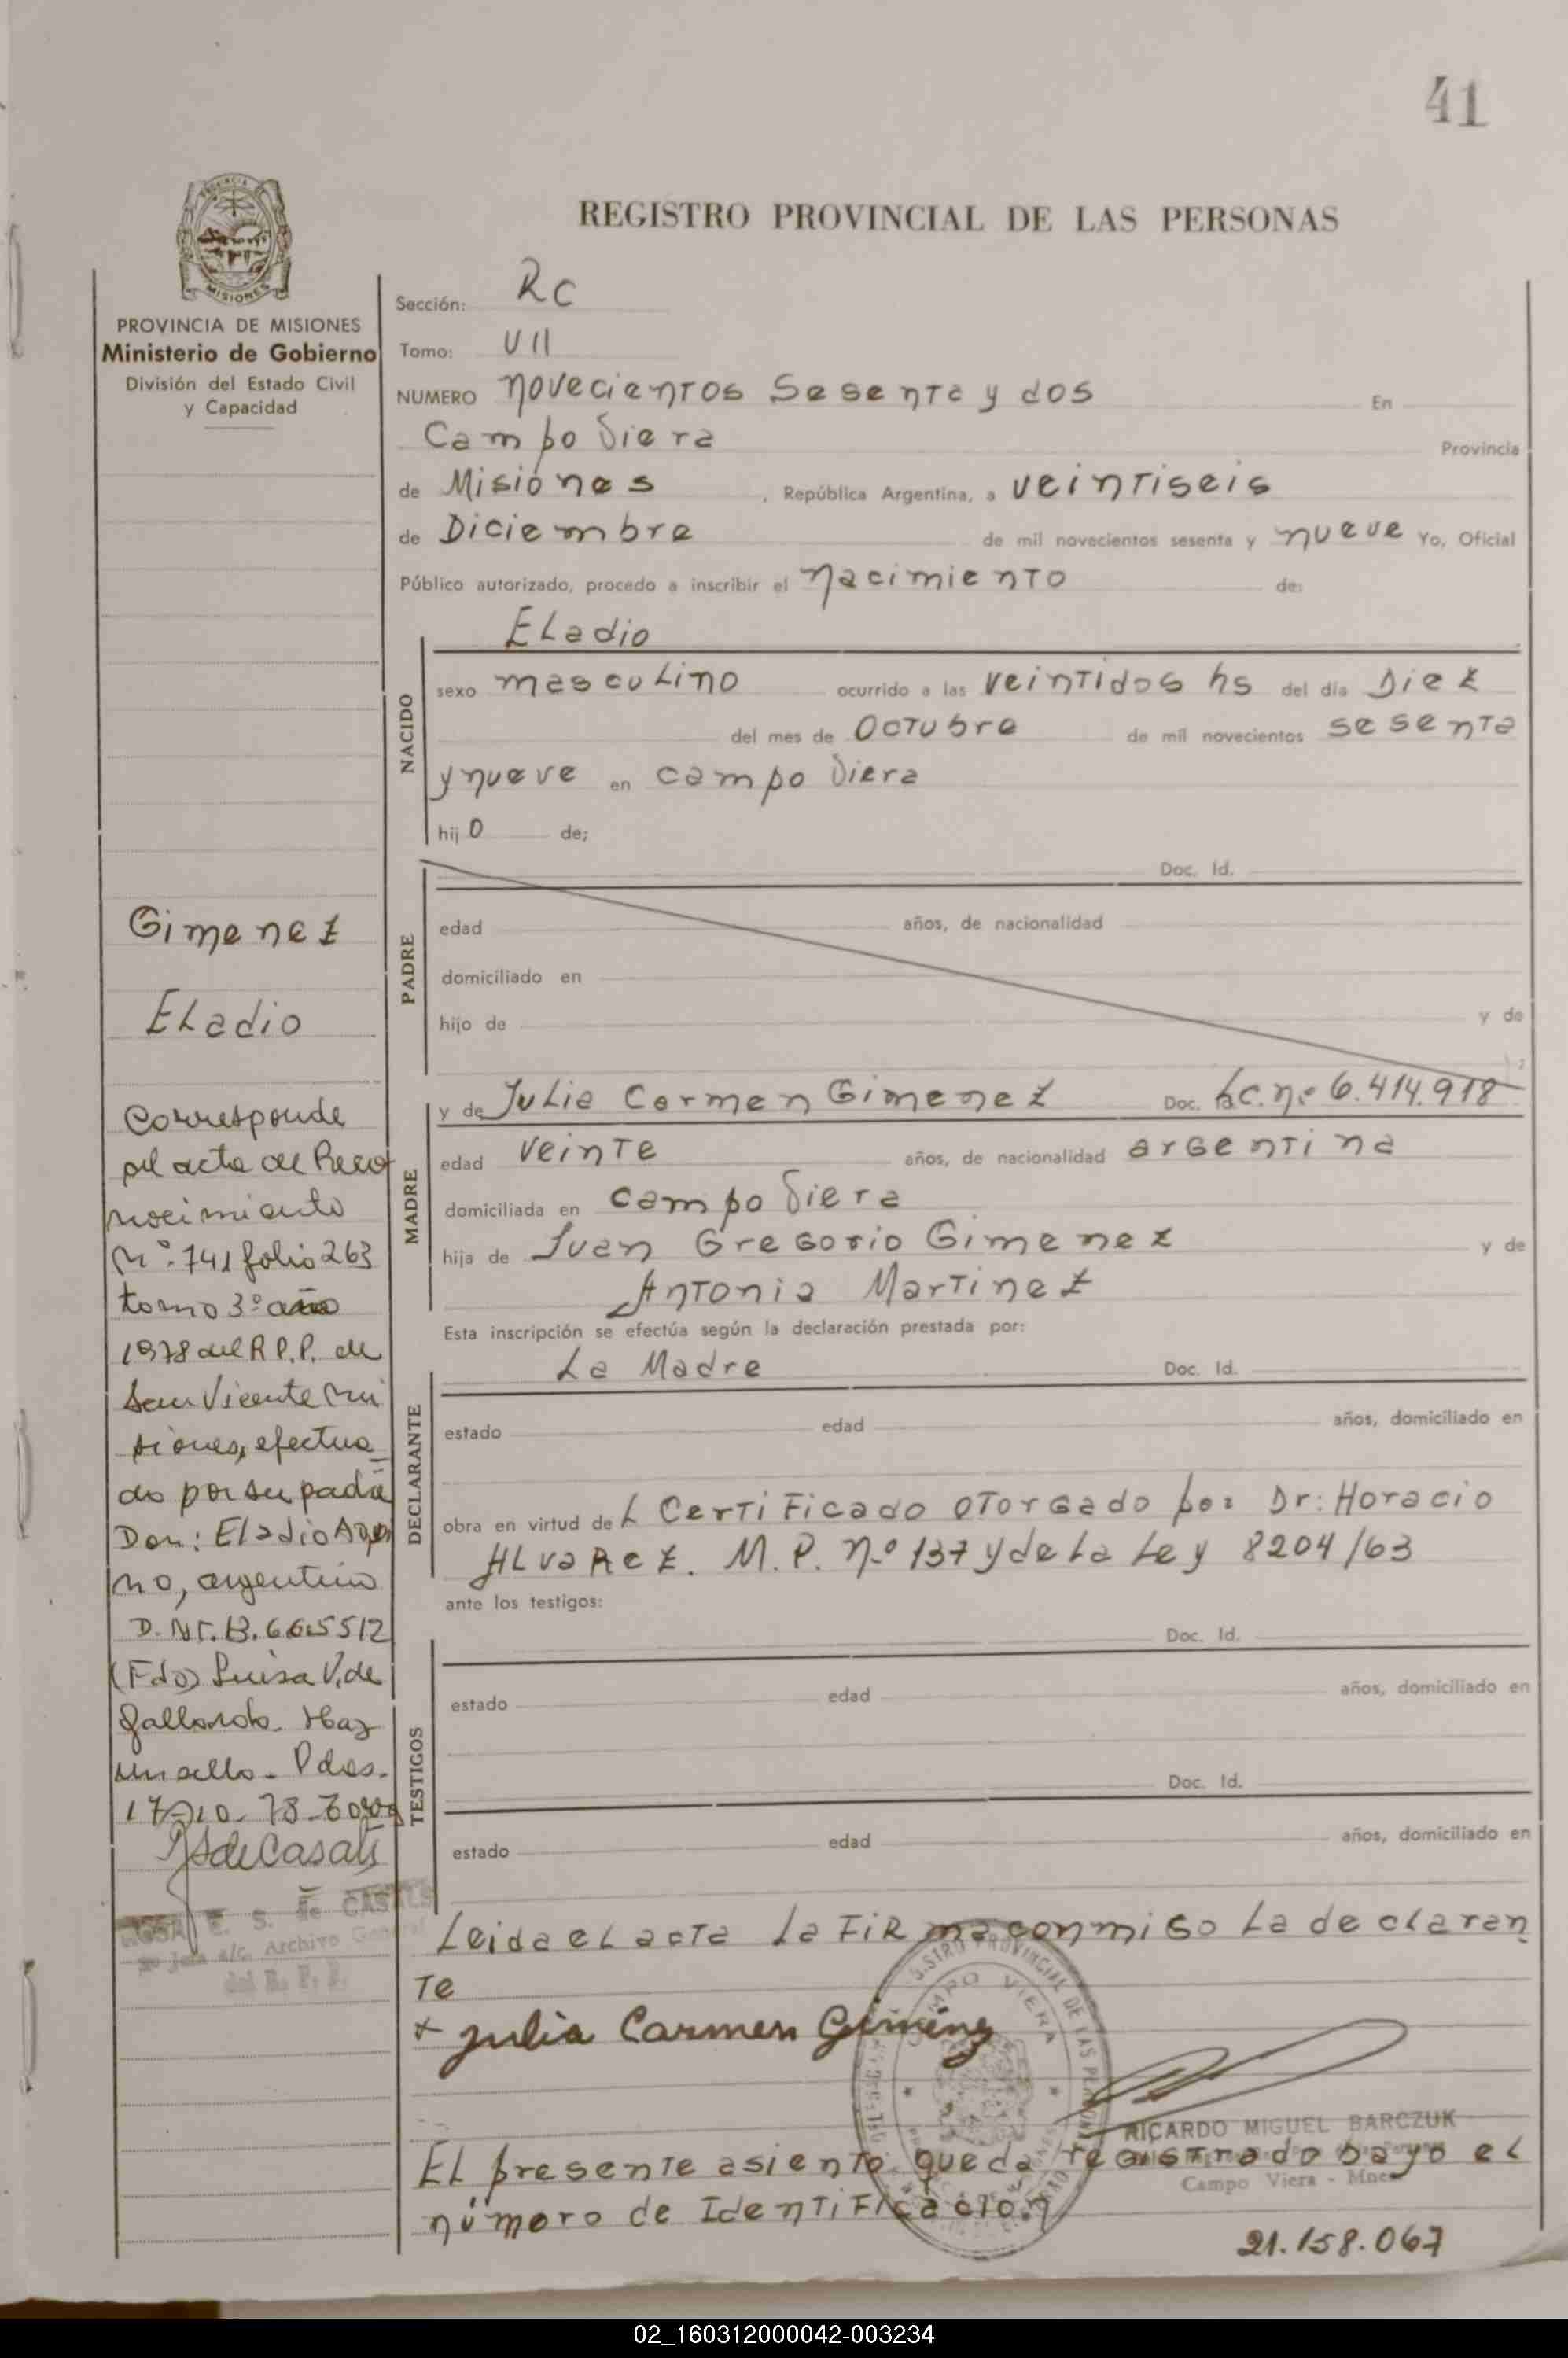 41
REGISTRO PROVINCIAL DE LAS PERSONAS
MISIONES
PROVINCIA DE MISIONES
Ministerio de Gobierno
División del Estado Civil
y Capacidad
Sección: RC
Tomo: VII
NUMERO novecientos sesenta y dos En
Campo Viera Provincia
de Misiónes , República Argentina, a veintiseis
de Diciembre de mil novecientos sesenta y nueve Yo, Oficial
Público autorizado, procedo a inscribir el nacimiento de:
NACIDO
Eladio
sexo masculino ocurrido a las veintidos hs del día Diez
del mes de Octubre de mil novecientos sesenta
y nueve en campo Viera
hijo de;
PADRE
Doc. Id.
edad años, de nacionalidad
domiciliado en
hijo de y de
MADRE
y de Julia Carmen Gimenez Doc. LC. nº 6.414.918
edad veinte años, de nacionalidad argentina
domiciliada en campo Viera
hija de Juan Gregorio Gimenez y de
Antonia Martinez
Esta inscripción se efectúa según la declaración prestada por:
DECLARANTE
La Madre Doc. Id.
estado edad años, domiciliado en
obra en virtud del Certificado otorgado por Dr: Horacio
Alvarez. M. P. nº 137 y de la Ley 8204/63
ante los testigos:
TESTIGOS
Doc. Id.
estado edad años, domiciliado en
Doc. Id.
estado edad años, domiciliado en
Leida el acta la firma conmigo la declaran
te
x Julia Carmen Giménez
RICARDO MIGUEL BARCZUK
Campo Viera - Mnes
El presente asiento queda registrado bayo el
número de Identificación
21.158.067
Gimenez
Eladio
Corresponde
al acta de Reco
nocimiento
Nº. 741 folio 263
tomo 3º año
1978 del R.P.P. de
San Vicente Mi
siones, efectua
do por su padre
Don: Eladio
no, argentino
(Fdo) Luisa V. de
Gallardo. Hay
un sello. Pdas.
17-10-78
de Casals
E. S. de CASALS
Jefe a/c. Archivo General
del R. P. P.
02_160312000042-003234